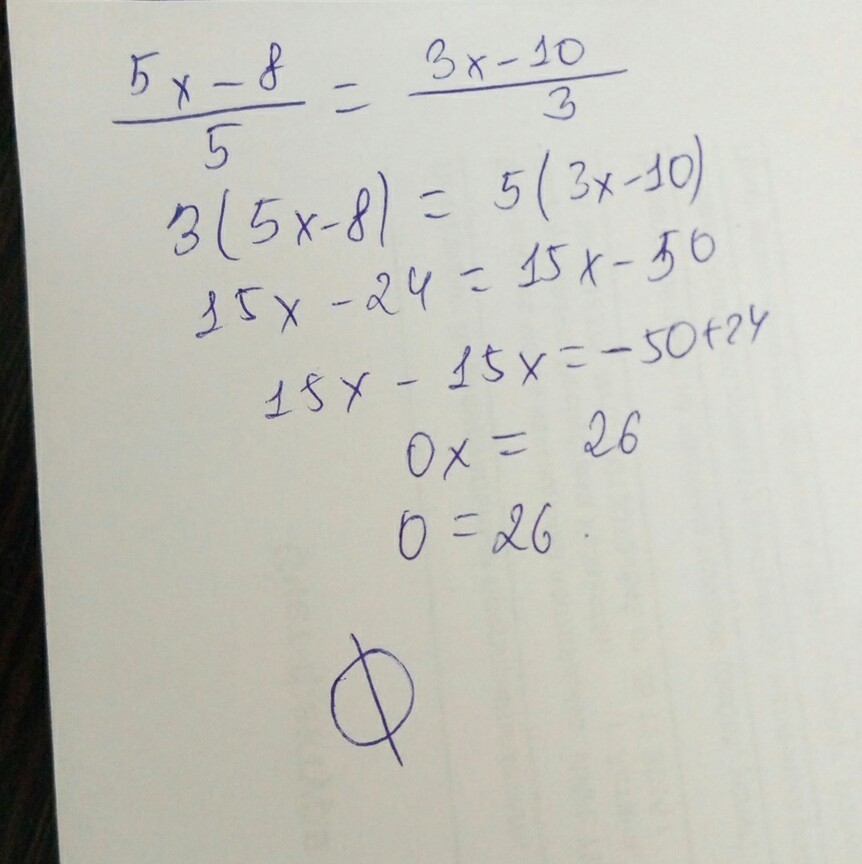 5x-8/5 = 3x-10/3
3(5x-8) = 5(3x-10)
15x-24 = 15x-50
15x-15x=-50+24
0x= 26
0=26.
∅